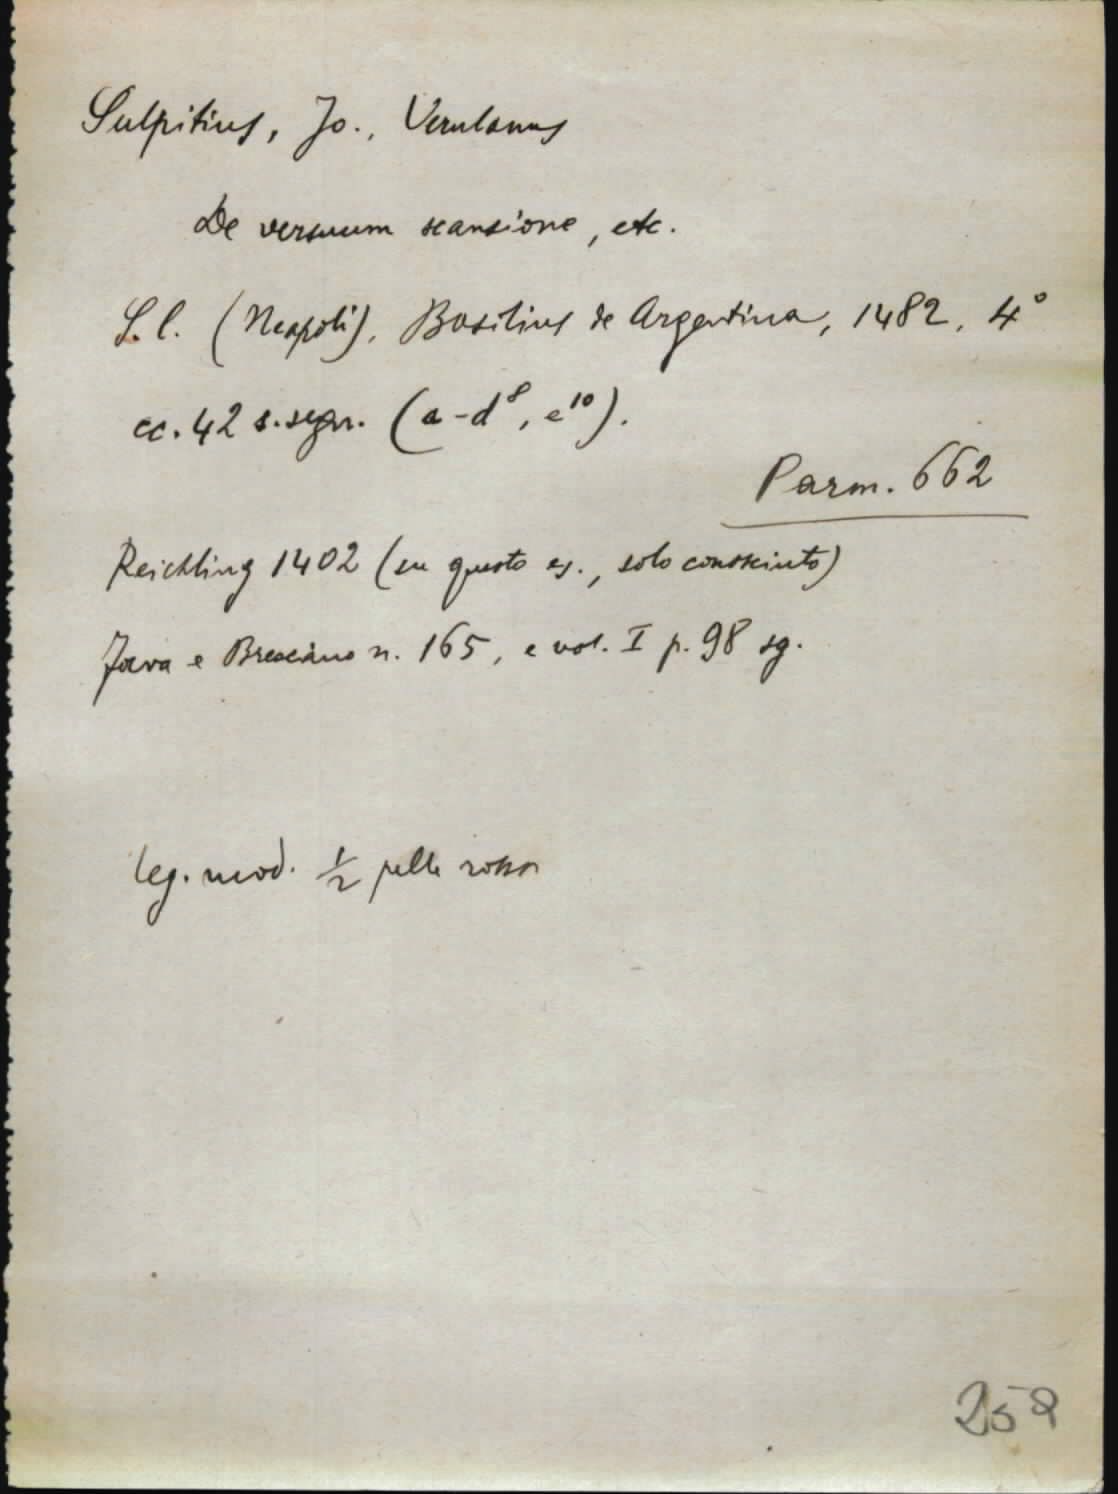 Sulpitius, Jo., Verulanus
De versuum scansione, etc.
S. l. (Neapoli), Basilius de Argentina, 1482, 4°
cc. 42 s. segn. (a-d⁸, e¹⁰).
Parm. 662
Reichling 1402 (su questo es., solo conosciuto)
Fava e Bresciano n. 165, e vol. I p. 98 sg.
leg. mod. ½ pelle rossa
258